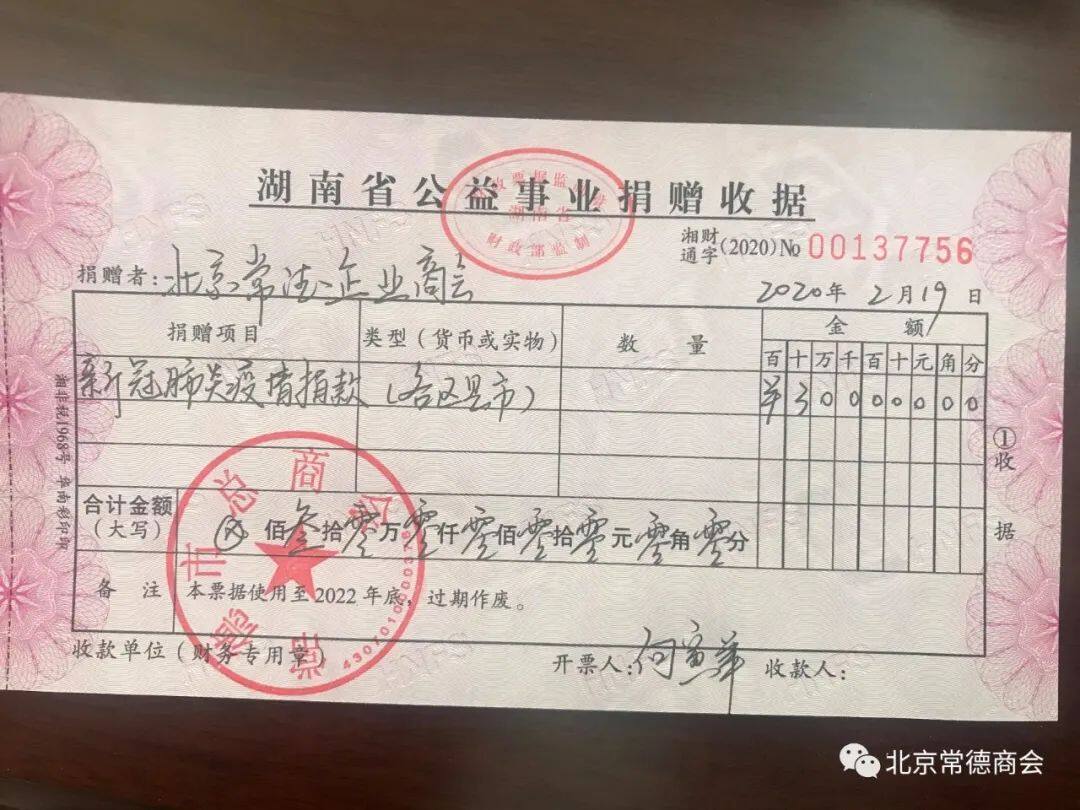 湖南省公益事业捐赠收据
湖南省
财政部监制
湘财通字(2020)No 00137756
捐赠者:北京常德企业商会
2020年2月19日
捐赠项目 类型(货币或实物) 数 量 金 额
百十万千百十元角分
新冠肺炎疫情捐款(各区县市) ¥30000000
合计金额(大写) ⊗佰叁拾零万零仟零佰零拾零元零角零分
备 注 本票据使用至2022年底,过期作废。
收款单位(财务专用章) 开票人: 收款人:
常德市总商会
湘非税1968号 华南彩印印
①收据
北京常德商会